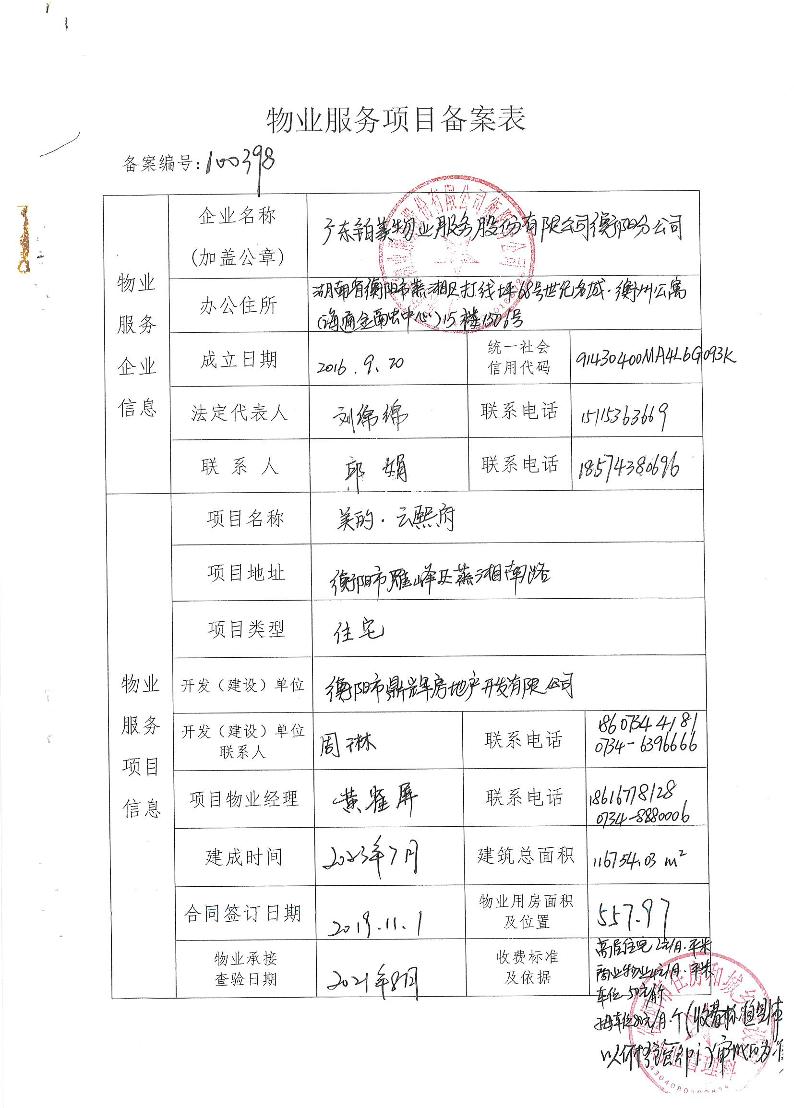 物业服务项目备案表
备案编号:100398
物业服务企业信息
企业名称(加盖公章)
广东铂美物业服务股份有限公司衡阳分公司
办公住所
湖南省衡阳市蒸湘区打线坪68号世纪名城·衡州公寓
15楼1506号
成立日期
2016.9.20
统一社会信用代码
91430400MA4L6G093K
法定代表人
刘绵绵
联系电话
15115363669
联系人
邱娟
联系电话
18574380696
物业服务项目信息
项目名称
美的·云熙府
项目地址
衡阳市雁峰区蒸湘南路
项目类型
住宅
开发(建设)单位
衡阳市鼎辉房地产开发有限公司
开发(建设)单位联系人
周琳
联系电话
18607344181
0734-6396666
项目物业经理
黄 屏
联系电话
18616778128
0734-8880006
建成时间
2023年7月
建筑总面积
116754.03 m²
合同签订日期
2019.11.1
物业用房面积及位置
557.97
物业承接查验日期
2021年8月
收费标准及依据
高层住宅2元/月·平米
商业物业 元/月·平米
车位 50元/月